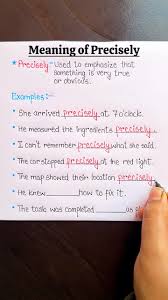 Meaning of Precisely
* Precisely - Used to emphasize that
something is very true
or obvious.
Examples:-
• She arrived precisely at 7 o'clock.
• He measured the ingredients precisely.
• I can't remember precisely what she said.
• The car stopped precisely at the red light.
• The map showed their location precisely.
• He knew ________ how to fix it.
• The task was completed ________ as pl